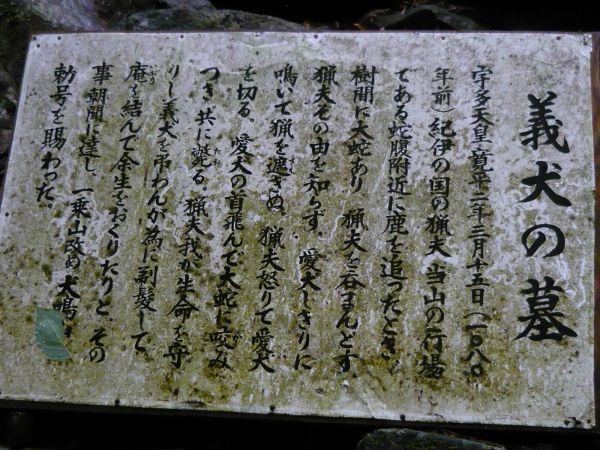 義犬の墓
宇多天皇寛平二年三月十五日(一〇八〇
年前)紀伊の国の猟夫、当山の行場
である蛇腹附近に鹿を追ったとき、
樹間に大蛇あり、猟夫を呑まんとす。
猟夫その由を知らず、愛犬しきりに
鳴いて猟を遮ぎぬ。猟夫怒りて愛犬
を切る。愛犬の首飛んで大蛇に咬み
つき共に斃る。猟夫我が生命を守
りし義犬を弔わんが為に剃髪して、
庵を結んで余生をおくりたりと、その
事朝聞に達し、一乗山改め犬鳴
勅号を賜わった。